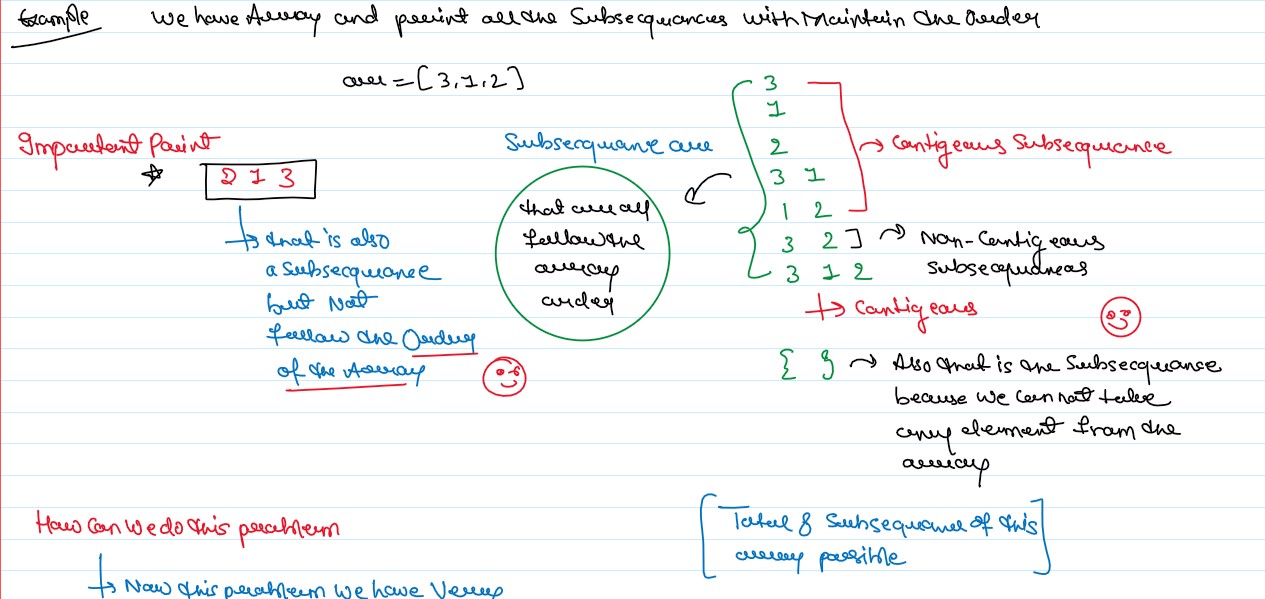 Example We have Array and print all the Subsequances with Maintain the Order
arr = [3,1,2]
Important Point
2 1 3
that is also
a subsequance
but Not
follow the Ordery
of the Array
Subsequance are
that array
follow the
array
order
3
1
2
3 1
1 2
3 2
3 1 2
Contigeous Subsequance
Non-Contigeous
subsequances
Contigeous
{ } Also that is the Subsequance
because we can not take
any element from the
array
Total 8 Subsequance of this
array possible
How Can We do this problem
Now this problem we have